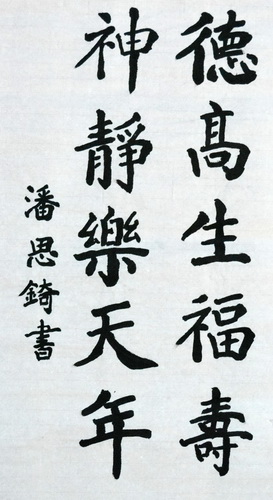 德高生福壽
神靜樂天年
潘思錡書